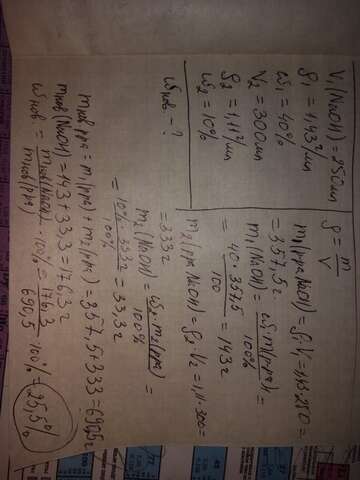 V₁(NaOH) = 250мл
ρ₁ = 1,43 г/мл
ω₁ = 40%
V₂ = 300мл
ρ₂ = 1,11 г/мл
ω₂ = 10%
ωнов. - ?
ρ = m/V
m₁(рра NaOH) = ρ₁·V₁ = 1,43·250 =
= 357,5г
m₁(NaOH) = ω₁·m₁(рра)/100% =
= 40·357,5/100 = 143г
m₂(рра NaOH) = ρ₂·V₂ = 1,11·300 =
= 333г
m₂(NaOH) = ω₂·m₂(рра)/100% =
= 10%·333г/100% = 33,3г
mнов рра = m₁(рра) + m₂(рра) = 357,5 + 333 = 690,5г
mнов(NaOH) = 143 + 33,3 = 176,3г
ωнов = mнов(NaOH)/mнов(рра) · 100% = 176,3/690,5 · 100% = 25,5%